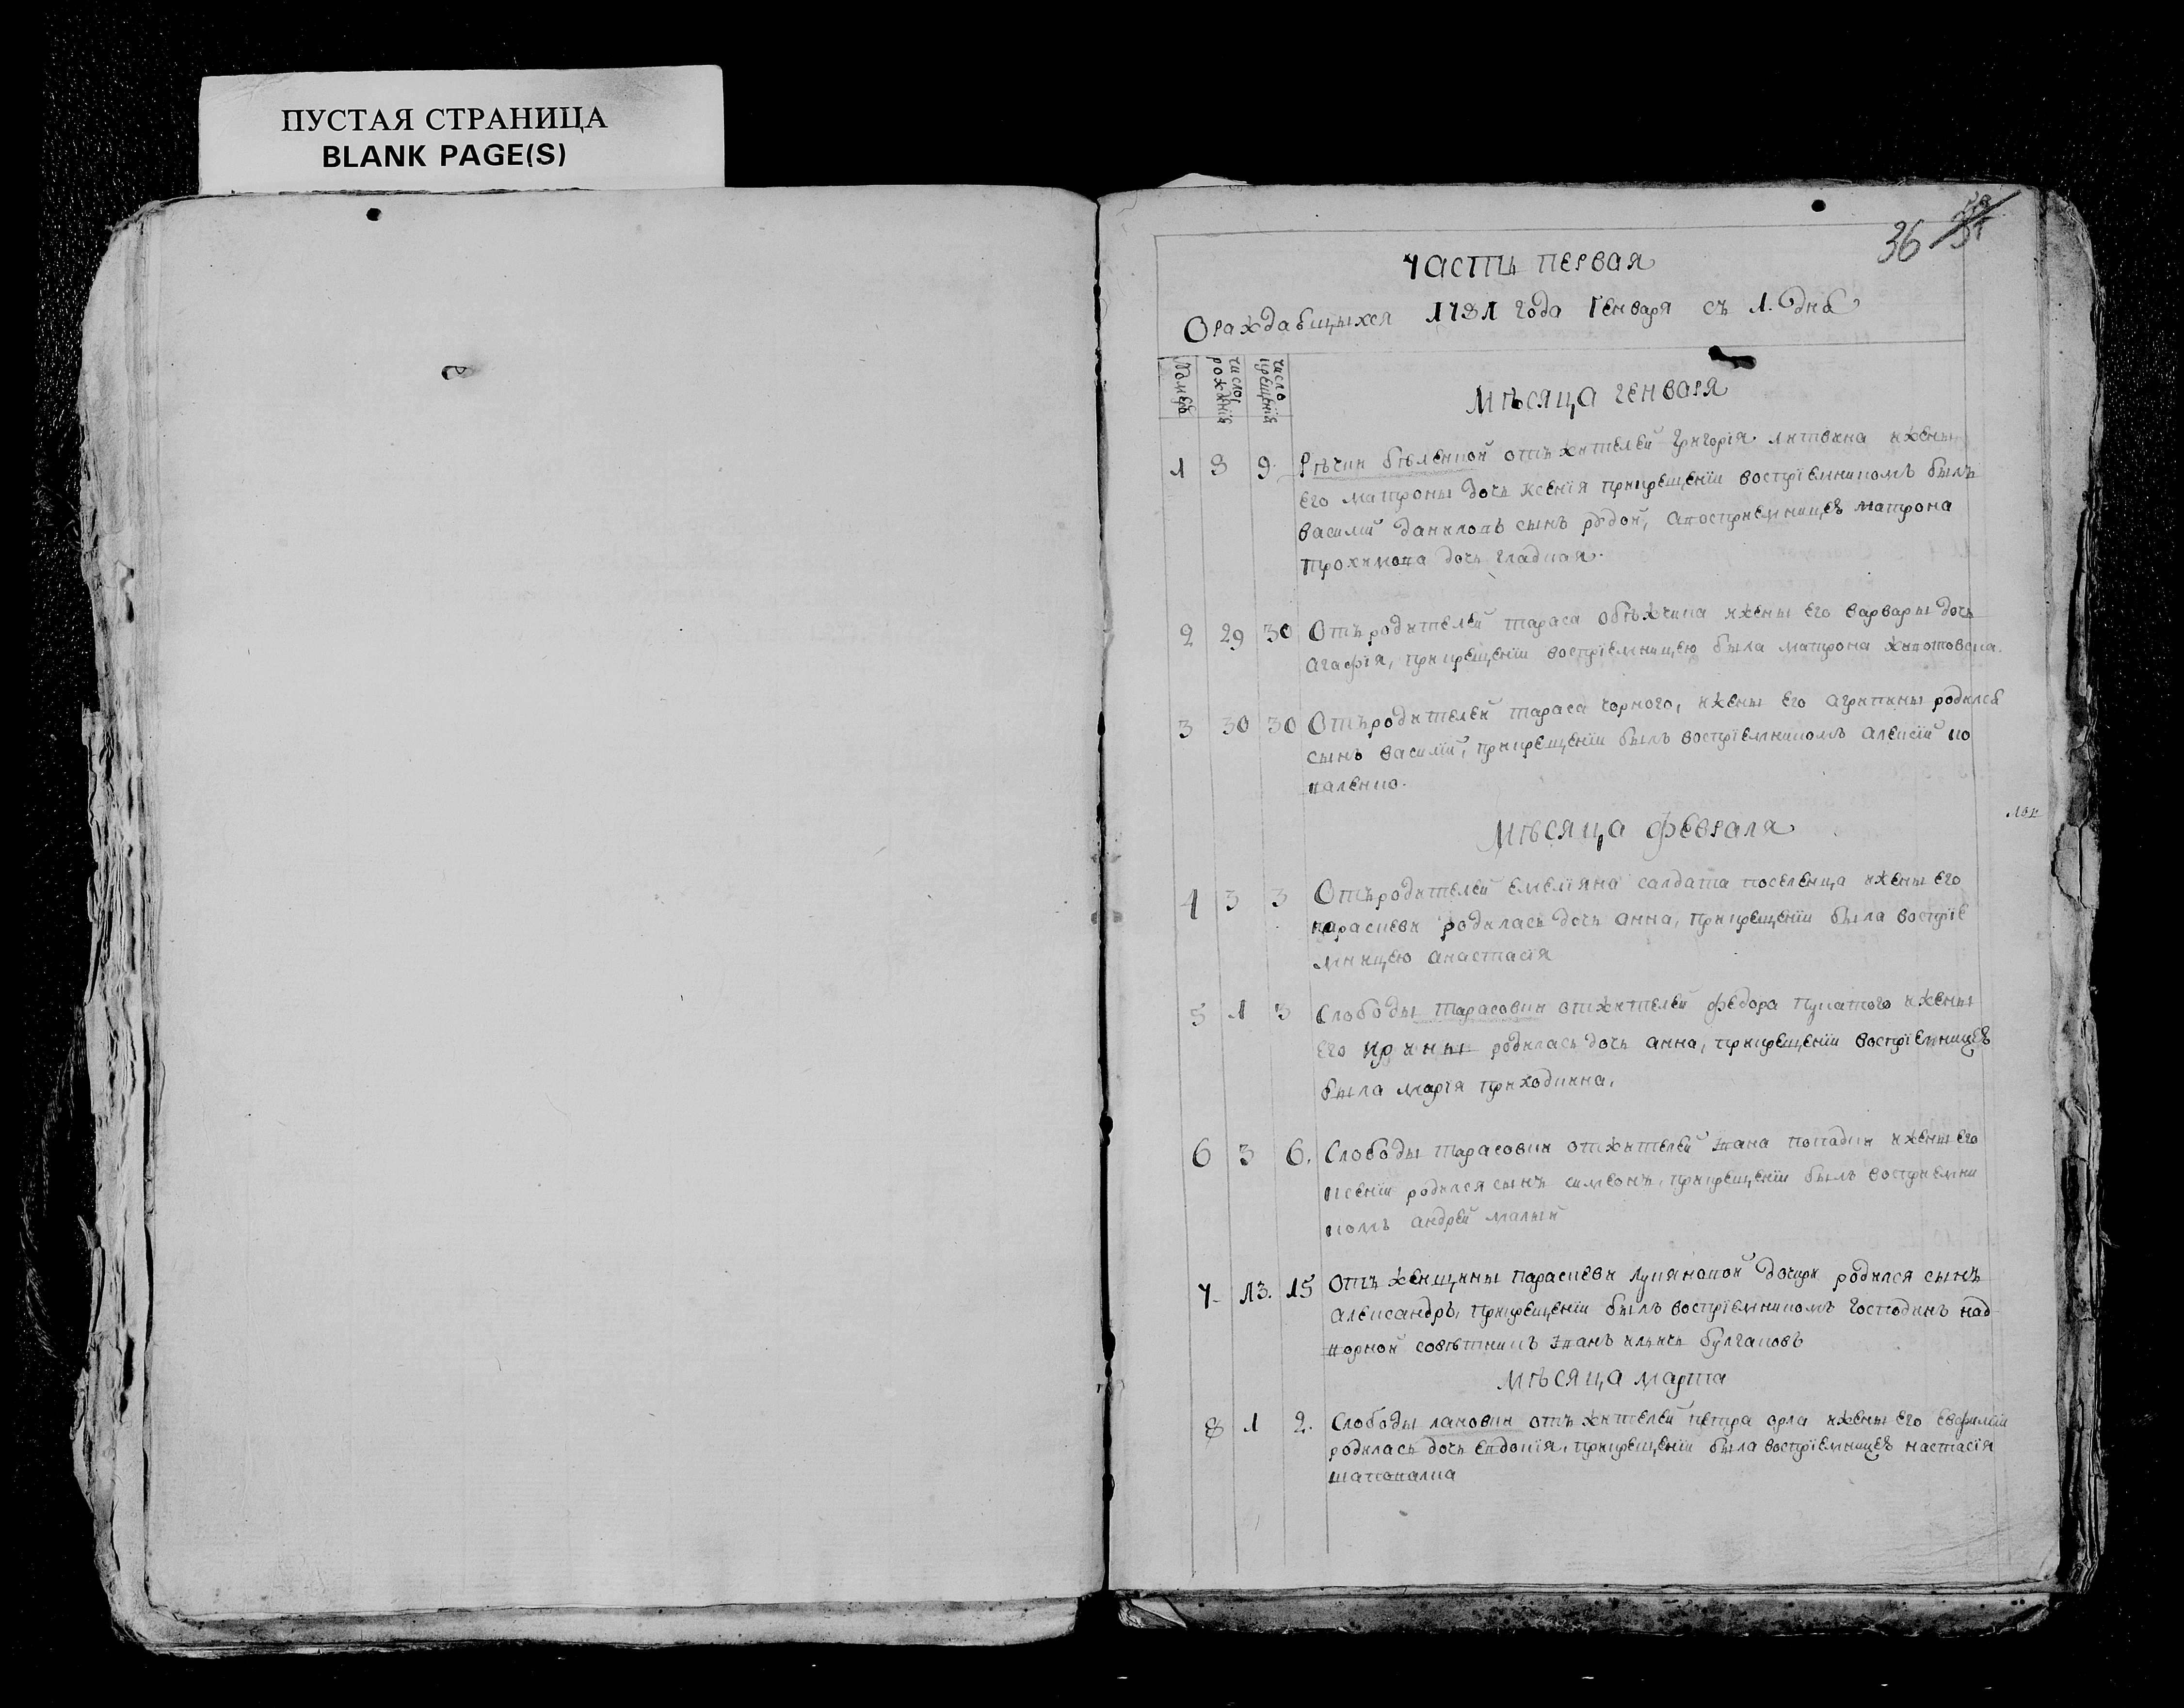 ПУСТАЯ СТРАНИЦА
BLANK PAGE(S)
36
часть первая
О раждавшихся 1781 года Генваря съ 1. дня
Номеръ
число рождения
число крещения
Мѣсяца генваря
1 8 9 Рѣчки отъ жителей Григорїя литвина ижены
его матроны дочь ксенїя прикрещенїи воспрїемникомъ былъ
василїй даниловъ сынъ рудой, авосприемницею матрона
трохимова дочь гладкая.
2 29 30 Отъ родителей тараса ижены его варвары дочь
агафїя, прикрещенїи воспрїемницею была матрона
3 30 30 Отъ родителей тараса чорного, ижены его агрипины родился
сынъ василїй, прикрещенїи былъ воспрїемникомъ алексїй ко
валенко.
Мѣсяца февраля
4 3 3 Отъ родителей емелїяна салдата поселенца ижены его
парасковы родилась дочь анна, прикрещенїи была воспрїе
мницею анастасїя
5 1 3 Слободы тарасовки отжителей федора пукатого ижены
его ирины родилась дочь анна, прикрещенїи воспрїемницею
была марїя приходкина.
6 3 6. Слободы тарасовки отжителей ївана попадки ижены его
ксенїи родился сынъ симеонъ, прикрещенїи былъ восприемни
комъ андрей малый
7 13. 15 отъ женщины парасковы лукяновой дочери родился сынъ
александръ, прикрещенїи былъ воспрїемникомъ господинъ над
ворной совѣтникъ їванъ иличь булгаковъ
Мѣсяца марта
8 1 2. Слободы отъ жителей петра орла ижены его евфимїи
родилась дочь евдокїя, прикрещенїи была воспрїемницею настасїя
шаповалка